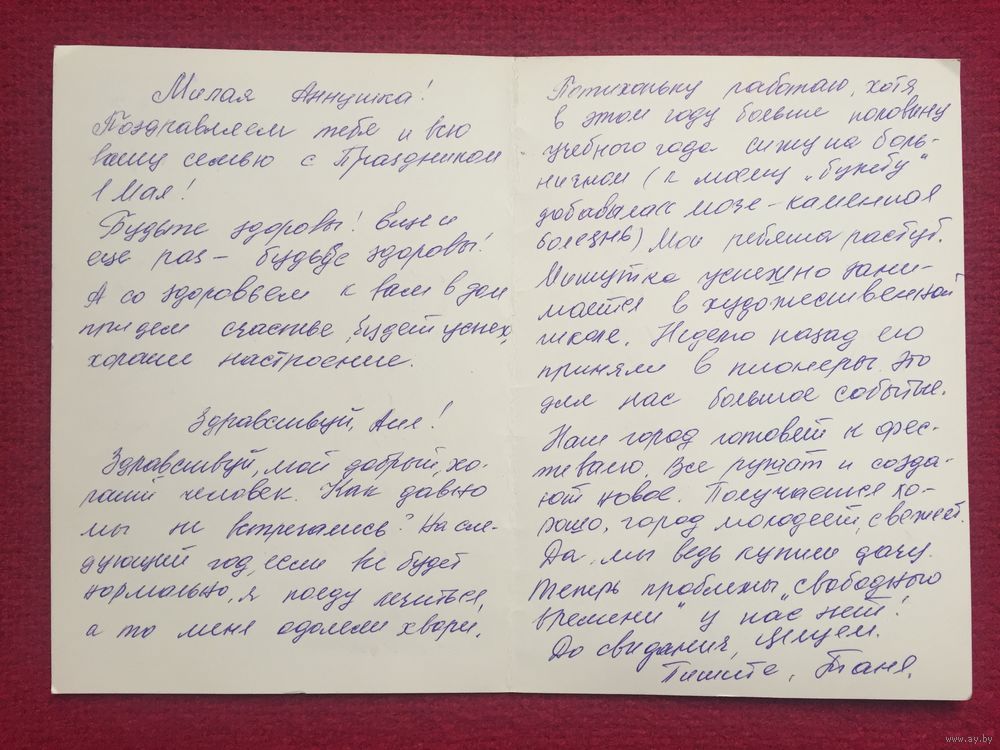 Милая Аннушка!
Поздравляем тебя и всю
вашу семью с Праздником
1 Мая!
Будьте здоровы! Еще и
еще раз – будьте здоровы!
А со здоровьем к вам в дом
придем счастье, будет успех,
хорошее настроение.
Здравствуй, Аня!
Здравствуй, мой добрый, хо-
роший человек. Как давно
мы не встречались? На сле-
дующий год, если все будет
нормально, я поеду лечиться,
а то меня одолели хвори.
Потихоньку работаю, хотя
в этом году больше половину
учебного года сижу на боль-
ничном (к моему „букету"
добавилась моче-каменная
болезнь) Мои ребята растут.
Мишутка успешно зани-
мается в художественной
школе. Неделю назад его
приняли в пионеры. Это
для нас большое событие.
Наш город готовят к фес-
тивалю. Все рушат и созда-
ют новое. Получается хо-
рошо, город молодеет, свежеет.
Да, мы ведь купили дачу.
Теперь проблемы „свободного
времени" у нас нет!
До свидания, Целуем.
Пишите, Таня.
www.ay.by